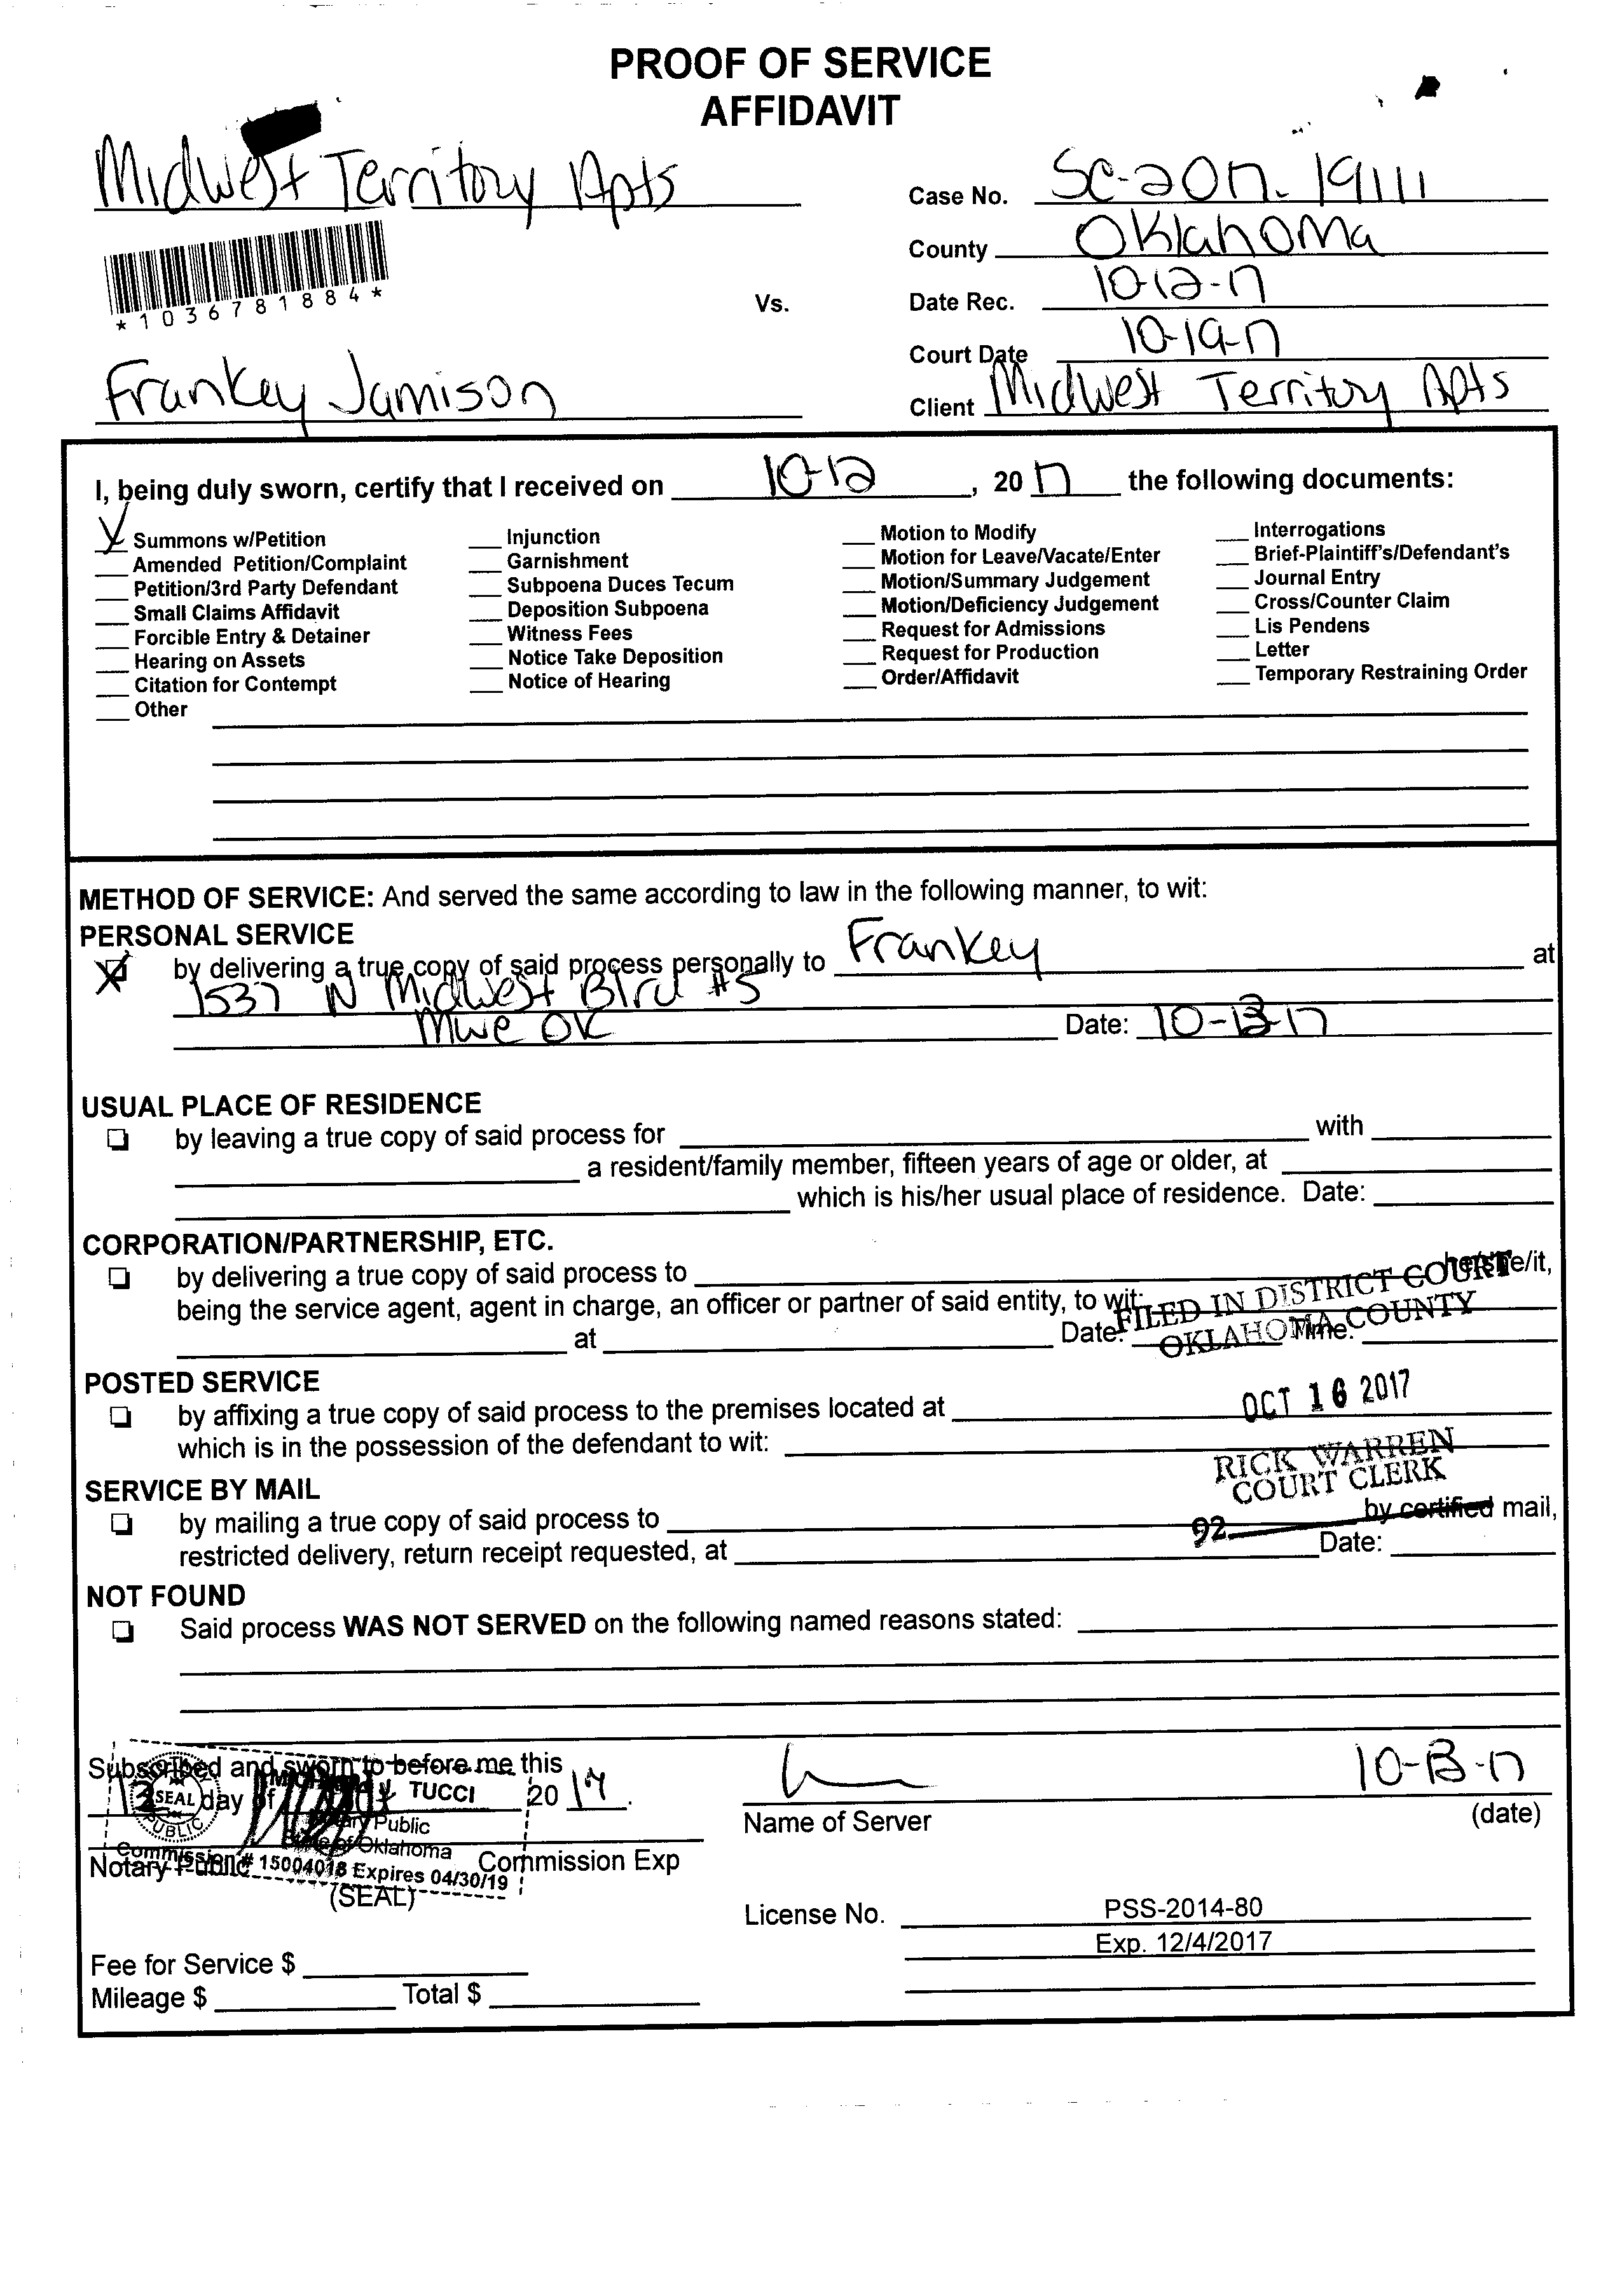 PROOF OF SERVICE
AFFIDAVIT
Midwest Territory Apts
Case No. SC-2017-19111
County Oklahoma
*1036781884*
Vs.
Date Rec. 10-12-17
Court Date 10-19-17
Frankey Jamison
Client Midwest Territory Apts
I, being duly sworn, certify that I received on 10-12, 20 17 the following documents:
Summons w/Petition
Amended Petition/Complaint
Petition/3rd Party Defendant
Small Claims Affidavit
Forcible Entry & Detainer
Hearing on Assets
Citation for Contempt
Other
Injunction
Garnishment
Subpoena Duces Tecum
Deposition Subpoena
Witness Fees
Notice Take Deposition
Notice of Hearing
Motion to Modify
Motion for Leave/Vacate/Enter
Motion/Summary Judgement
Motion/Deficiency Judgement
Request for Admissions
Request for Production
Order/Affidavit
Interrogations
Brief-Plaintiff's/Defendant's
Journal Entry
Cross/Counter Claim
Lis Pendens
Letter
Temporary Restraining Order
METHOD OF SERVICE: And served the same according to law in the following manner, to wit:
PERSONAL SERVICE
by delivering a true copy of said process personally to Frankey at
1537 N Midwest Blvd #5
MWC OK Date: 10-13-17
USUAL PLACE OF RESIDENCE
by leaving a true copy of said process for with
a resident/family member, fifteen years of age or older, at
which is his/her usual place of residence. Date:
CORPORATION/PARTNERSHIP, ETC.
by delivering a true copy of said process to he/she/it,
being the service agent, agent in charge, an officer or partner of said entity, to wit:
at Date: Time:
FILED IN DISTRICT COURT
OKLAHOMA COUNTY
POSTED SERVICE
by affixing a true copy of said process to the premises located at
which is in the possession of the defendant to wit:
OCT 16 2017
RICK WARREN
COURT CLERK
92
SERVICE BY MAIL
by mailing a true copy of said process to by certified mail,
restricted delivery, return receipt requested, at Date:
NOT FOUND
Said process WAS NOT SERVED on the following named reasons stated:
Subscribed and sworn to before me this
13 day of 20 17.
TUCCI
Notary Public
State of Oklahoma
Commission # 15004018 Expires 04/30/19
NOTARY PUBLIC
SEAL
Notary Public Commission Exp
(SEAL)
10-13-17
Name of Server (date)
License No. PSS-2014-80
Exp. 12/4/2017
Fee for Service $
Mileage $ Total $